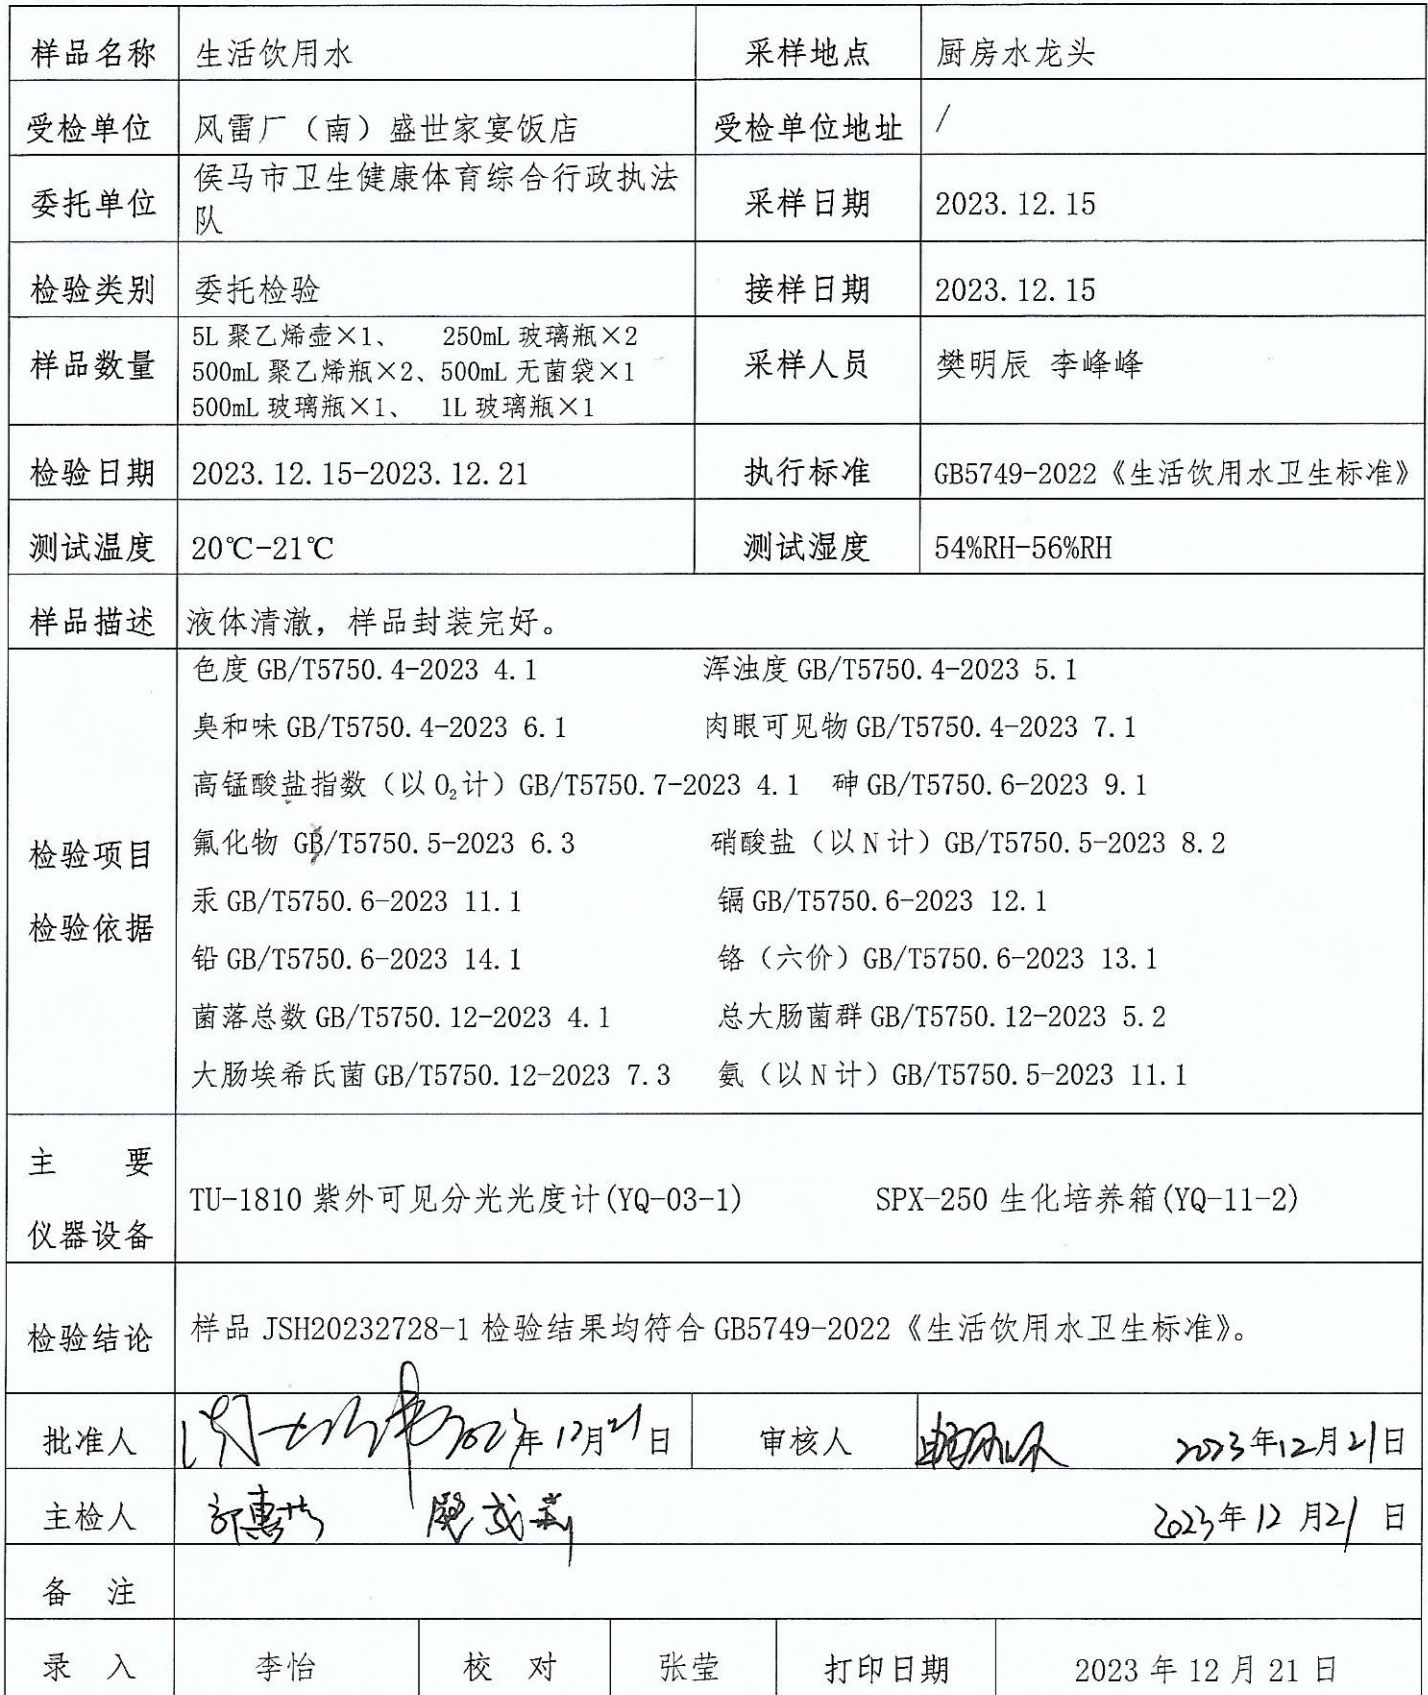 样品名称 生活饮用水 采样地点 厨房水龙头
受检单位 风雷厂（南）盛世家宴饭店 受检单位地址 /
委托单位 侯马市卫生健康体育综合行政执法队 采样日期 2023.12.15
检验类别 委托检验 接样日期 2023.12.15
样品数量 5L 聚乙烯壶×1、 250mL 玻璃瓶×2
500mL 聚乙烯瓶×2、500mL 无菌袋×1
500mL 玻璃瓶×1、 1L 玻璃瓶×1
采样人员 樊明辰 李峰峰
检验日期 2023.12.15-2023.12.21 执行标准 GB5749-2022《生活饮用水卫生标准》
测试温度 20℃-21℃ 测试湿度 54%RH-56%RH
样品描述 液体清澈，样品封装完好。
检验项目
检验依据
色度 GB/T5750.4-2023 4.1 浑浊度 GB/T5750.4-2023 5.1
臭和味 GB/T5750.4-2023 6.1 肉眼可见物 GB/T5750.4-2023 7.1
高锰酸盐指数（以 O₂计）GB/T5750.7-2023 4.1 砷 GB/T5750.6-2023 9.1
氟化物 GB/T5750.5-2023 6.3 硝酸盐（以 N 计）GB/T5750.5-2023 8.2
汞 GB/T5750.6-2023 11.1 镉 GB/T5750.6-2023 12.1
铅 GB/T5750.6-2023 14.1 铬（六价）GB/T5750.6-2023 13.1
菌落总数 GB/T5750.12-2023 4.1 总大肠菌群 GB/T5750.12-2023 5.2
大肠埃希氏菌 GB/T5750.12-2023 7.3 氨（以 N 计）GB/T5750.5-2023 11.1
主 要
仪器设备
TU-1810 紫外可见分光光度计(YQ-03-1) SPX-250 生化培养箱(YQ-11-2)
检验结论 样品 JSH20232728-1 检验结果均符合 GB5749-2022《生活饮用水卫生标准》。
批准人 2023年12月21日 审核人 2023年12月21日
主检人 2023年12月21日
备 注
录 入 李怡 校 对 张莹 打印日期 2023 年 12 月 21 日